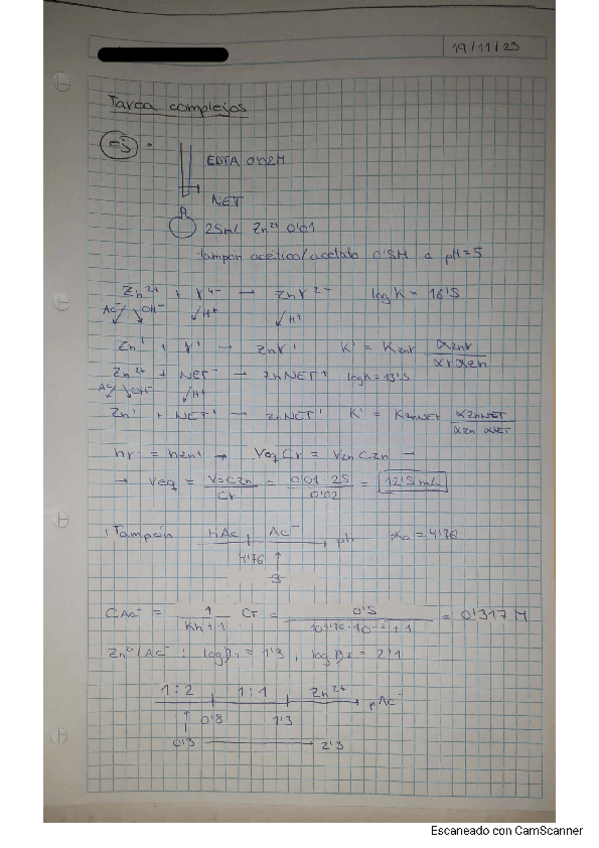 19/11/23
Tarea complejos
EDTA 0'02M
NET
25mL Zn²⁺ 0'01
tampon acético/acetato 0'5M a pH=5
Zn²⁺ + Y⁴⁻ → ZnY²⁻ logK = 16'5
Ac⁻ OH⁻ H⁺ H⁺
Zn' + Y' → ZnY' K' = KZnY αZnY / αY αZn
Zn²⁺ + NET⁻ → ZnNET⁺ logK = 13'5
Ac⁻ OH⁻ H⁺
Zn' + NET' → ZnNET' K' = KZnNET αZnNET / αZn αNET
nY' = nZn' → Veq CY = VZn CZn →
→ Veq = V₀CZn / CY = 0'01 · 25 / 0'02 = 12'5 mL
Tampón HAc Ac⁻ pH pKa = 4'76
4'76
5
CAc⁻ = 1 / Kh+1 CT = 0'5 = 0'317 M
Zn²⁺/Ac⁻ : logβ₁ = 1'3, logβ₂ = 2'1
1:2 1:1 Zn²⁺ pAc⁻
0'8 1'3
0'3 → 2'3
Escaneado con CamScanner